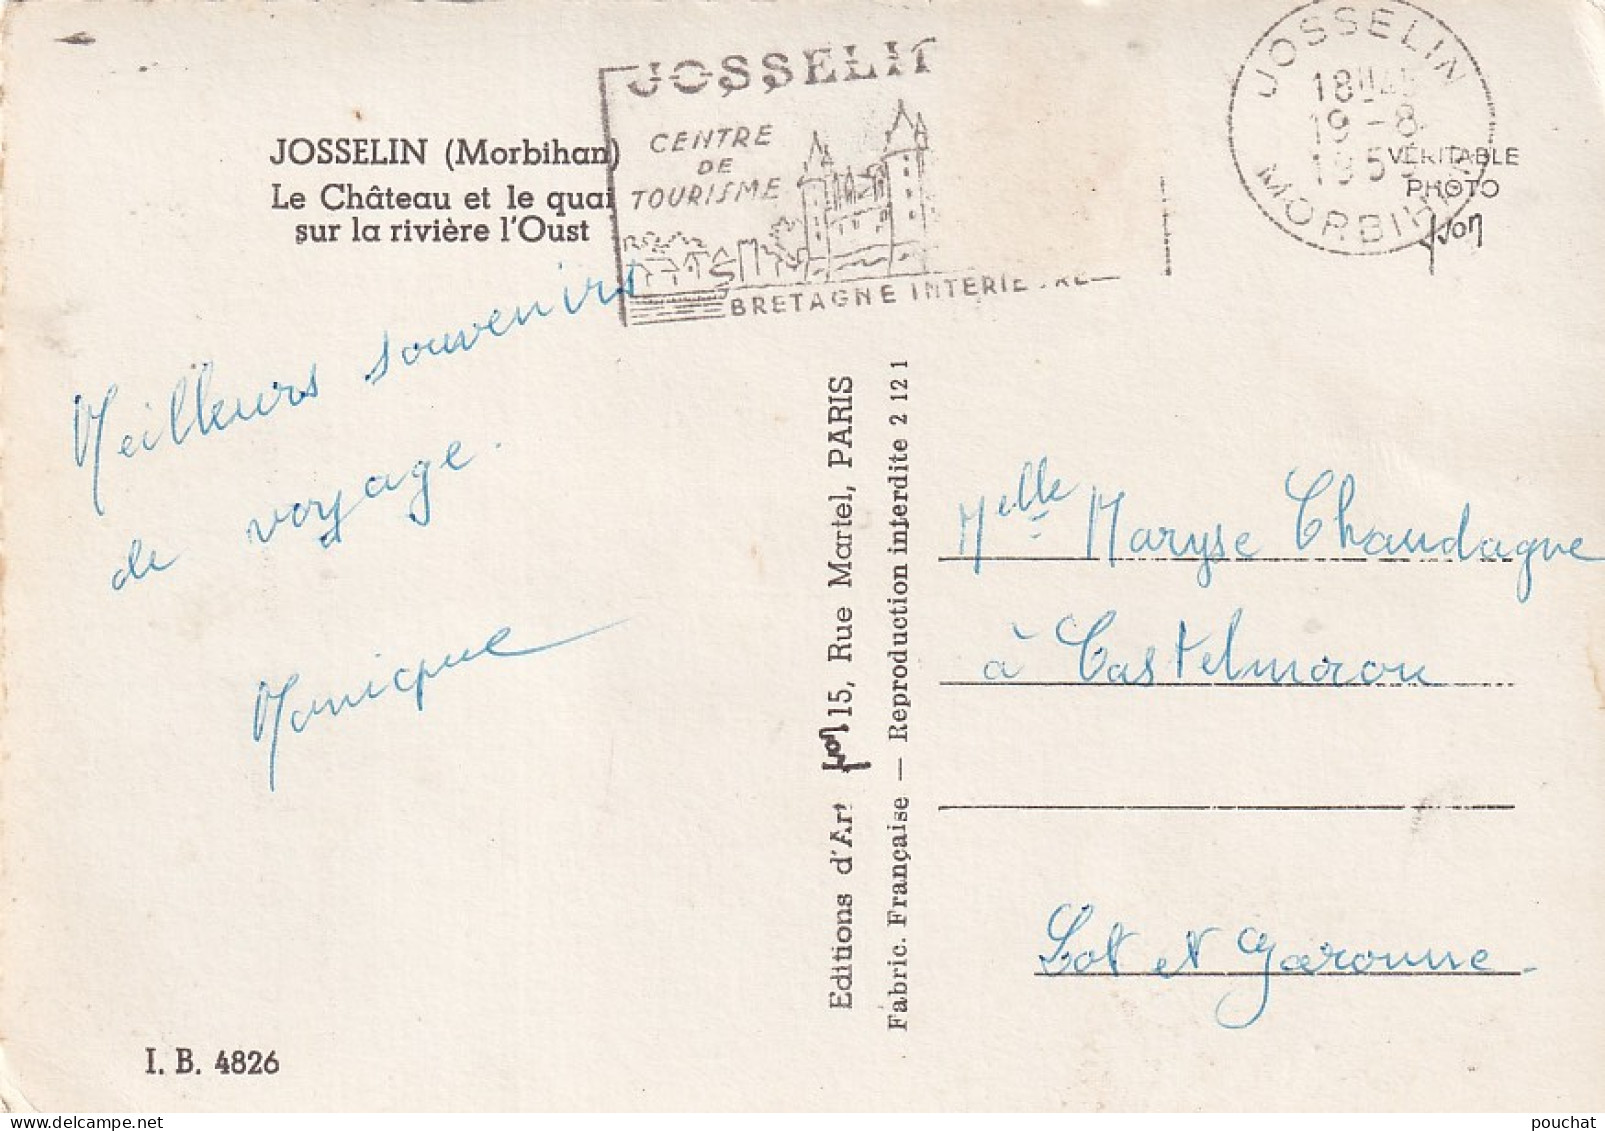 JOSSELIN (Morbihan)
Le Château et le quai
sur la rivière l'Oust
JOSSELIN
CENTRE
DE
TOURISME
BRETAGNE INTERIEURE
JOSSELIN
18H45
19 - 8
195
MORBIHAN
VÉRITABLE
PHOTO
Yvon
Meilleurs souvenirs
de voyage.
Monique
Editions d'Art Yvon 15, Rue Martel, PARIS
Fabric. Française — Reproduction interdite 2 121
Melle Maryse Chaudagne
à Castelmoron
Lot et Garonne.
I. B. 4826
pouchat